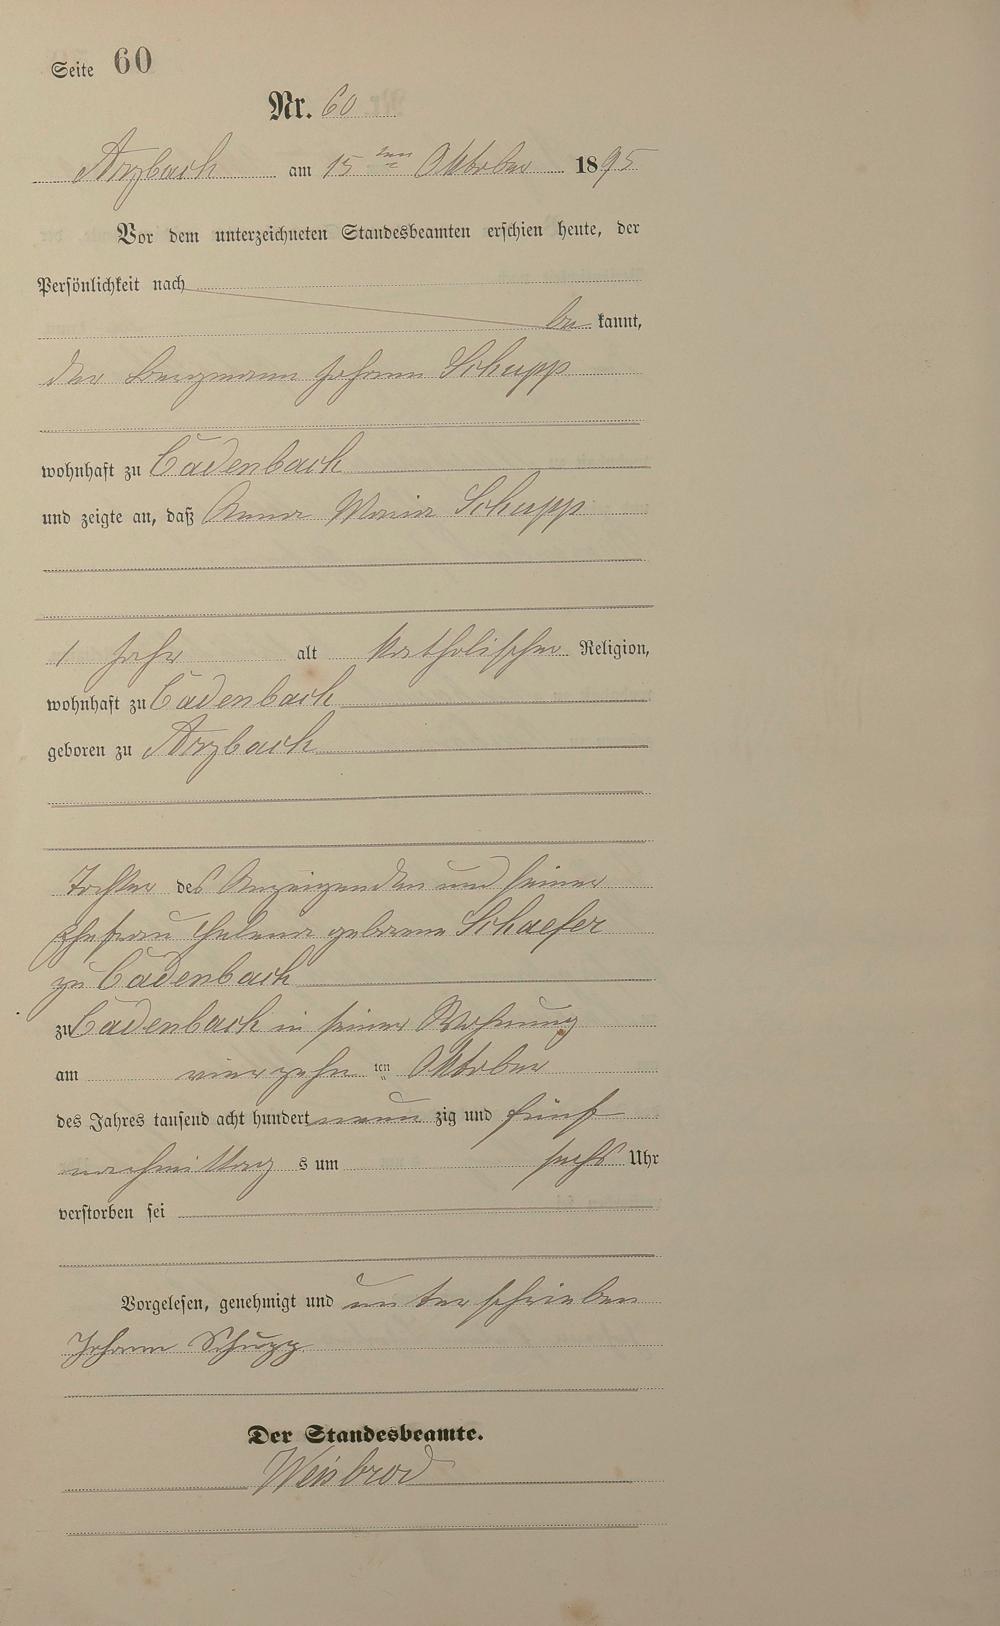 Seite 60
Nr. 60
Arzbach am 15ten Oktober 1895
Vor dem unterzeichneten Standesbeamten erschien heute, der
Persönlichkeit nach
be kannt,
der Bergmann Johann Schupp
wohnhaft zu Cadenbach
und zeigte an, daß Anna Maria Schupp
1 Jahr alt katholischer Religion,
wohnhaft zu Cadenbach
geboren zu Arzbach
Tochter des Anzeigenden und seiner
Ehefrau Helena geborene Schaefer
zu Cadenbach
zu Cadenbach in seiner Wohnung
am vierzehn ten Oktober
des Jahres tausend acht hundert neun zig und fünf
nachmittag s um sechs Uhr
verstorben sei
Vorgelesen, genehmigt und unterschrieben
Johann Schupp
Der Standesbeamte.
Weisbrod